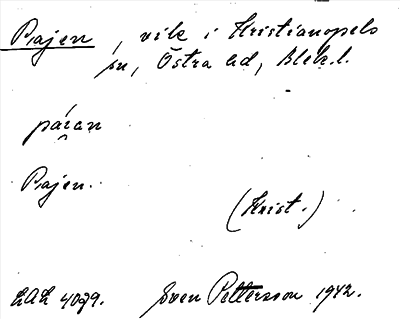 Pajen, vik i Kristianopels
sn, Östra hd, Blek. l.
pái̯an
Pajen.
(Krist.)
LAL 4079.
Sven Pettersson 1942.